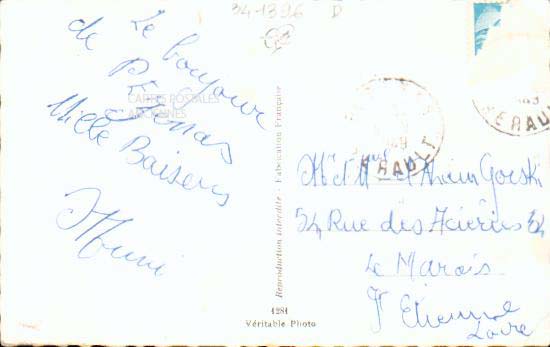 34-1396 D
Le bonjour
de PEZENAS
Mille Baisers
CARTES POSTALES
ANCIENNES
Reproduction interdite - Fabrication Française
HERAULT
HERAULT
Mr et Mme Gorski
54 Rue des Aciéries 54
Le Marais
St Etienne
Loire
1281
Véritable Photo